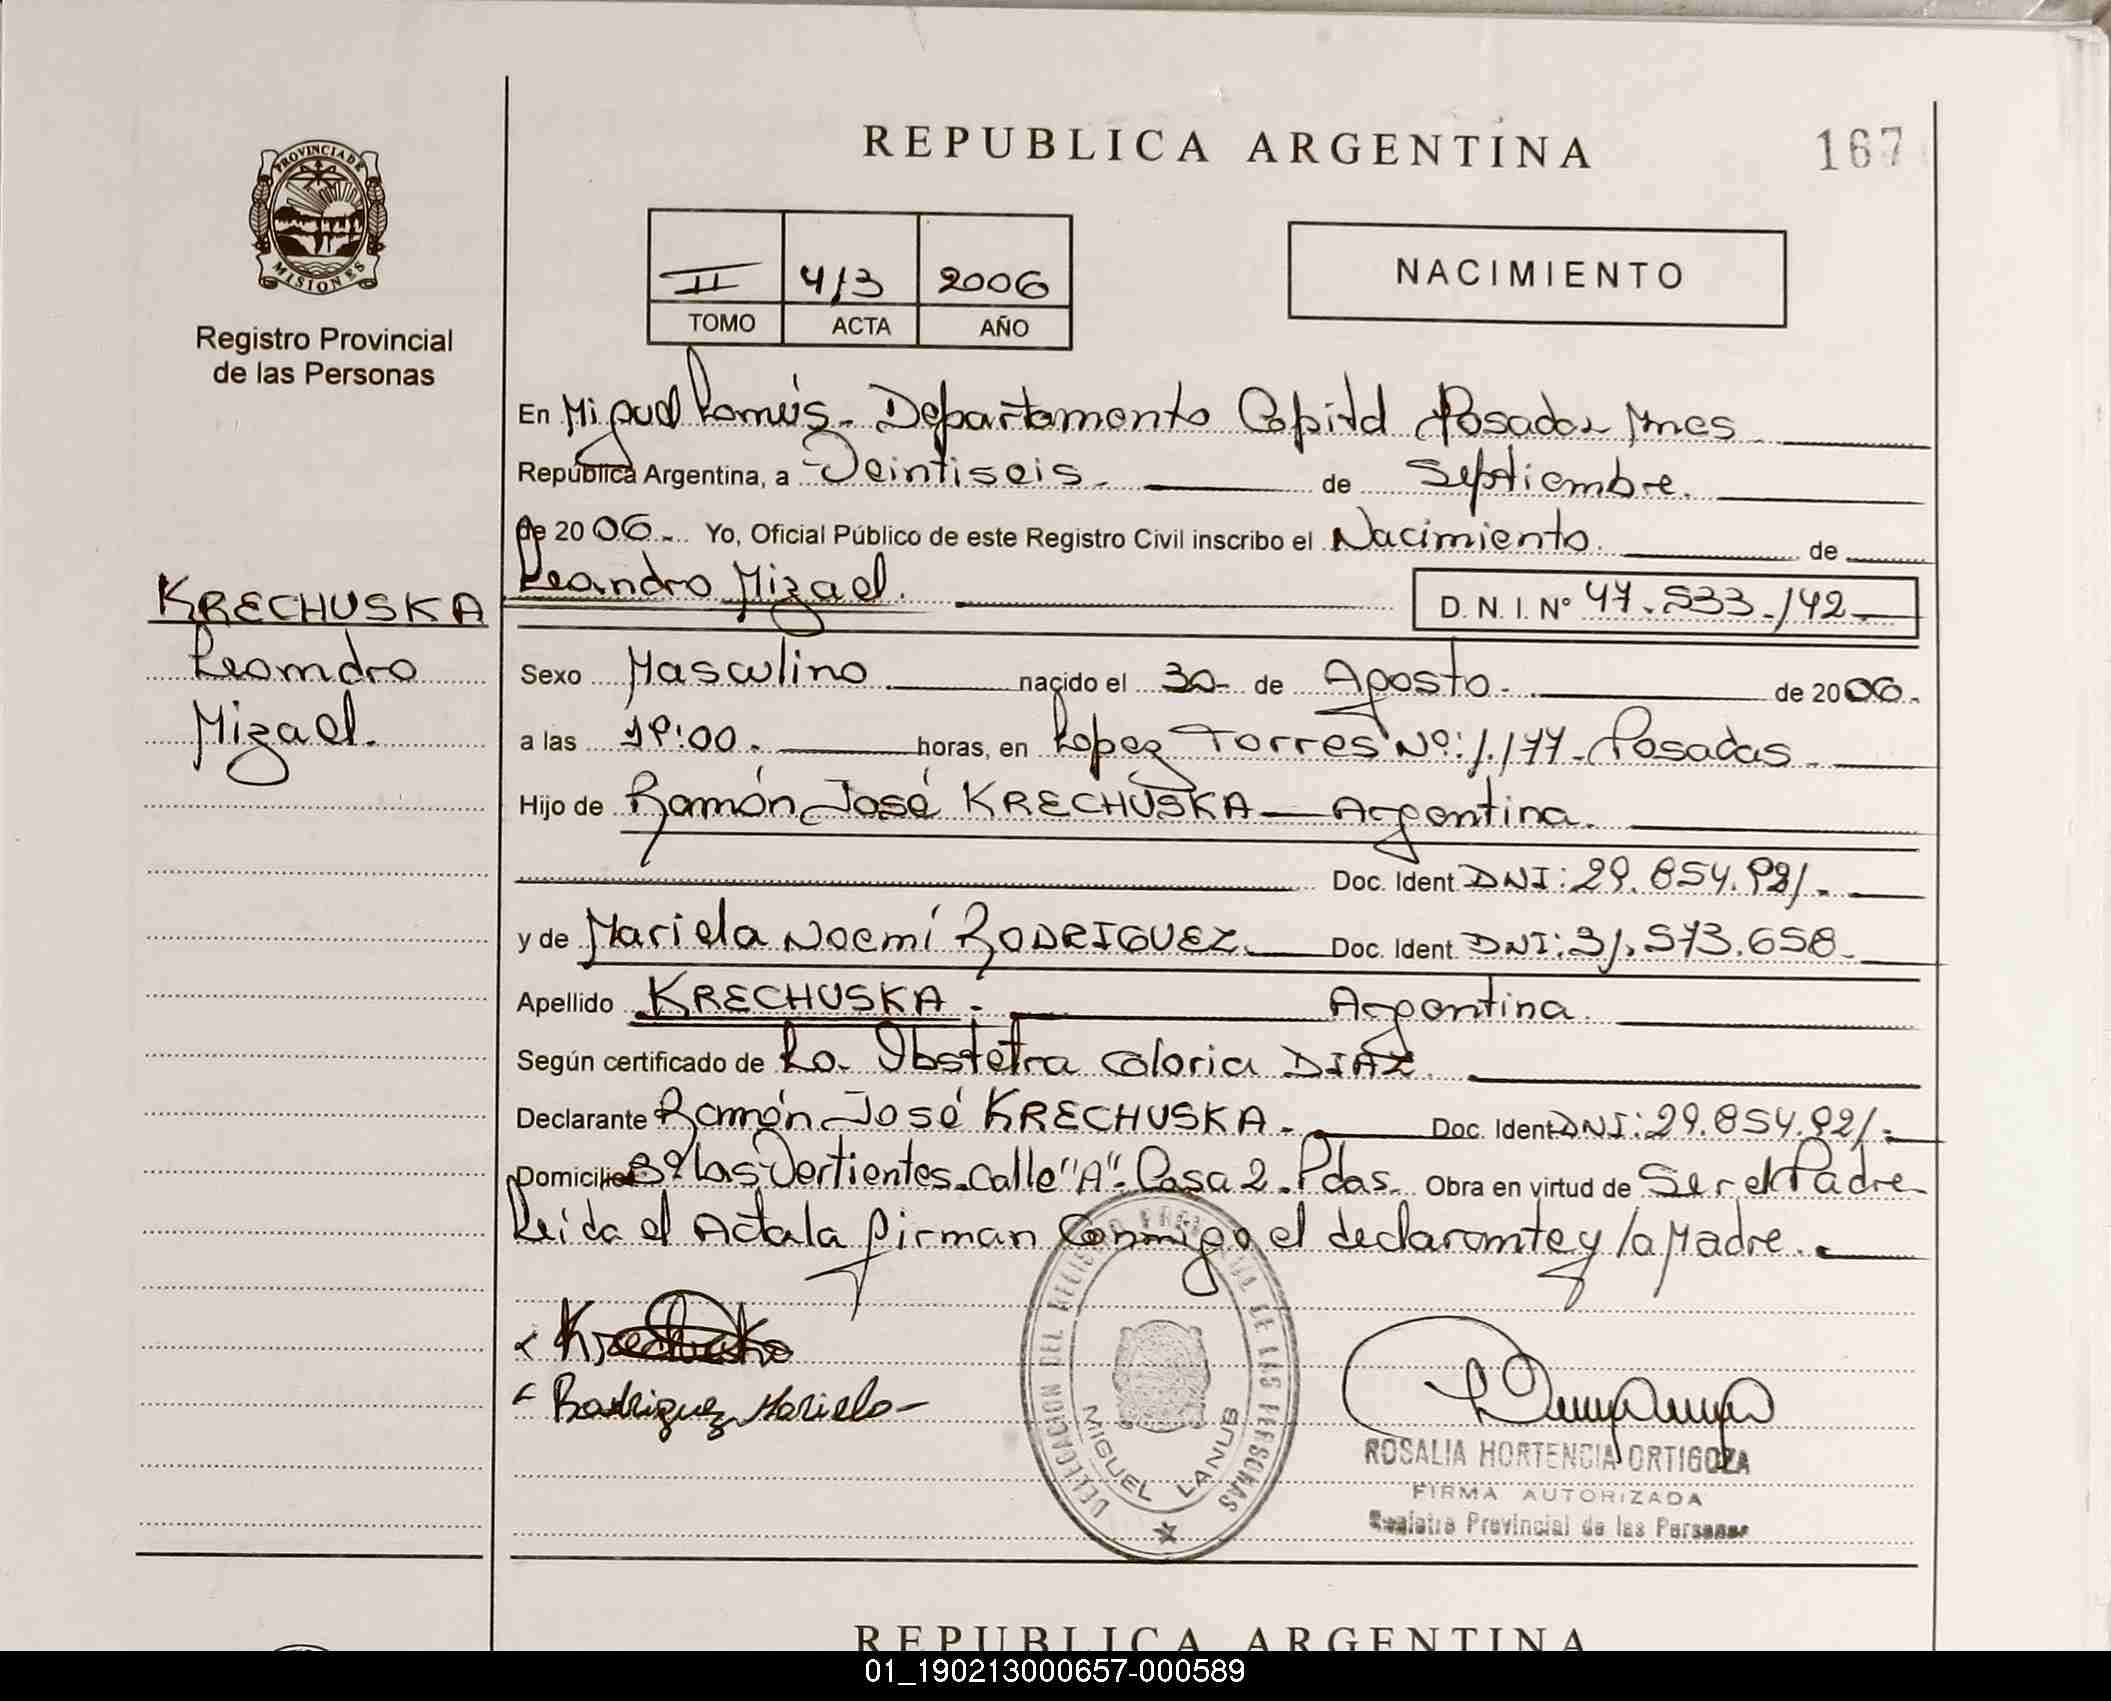 REPUBLICA ARGENTINA
167
PROVINCIA DE
MISIONES
Registro Provincial
de las Personas
II 413 2006
TOMO ACTA AÑO
NACIMIENTO
En Miguel Lanús. Departamento Capital Posadas Mnes
Republica Argentina, a Veintiseis. de Septiembre.
de 2006. Yo, Oficial Público de este Registro Civil inscribo el Nacimiento. de
Leandro Mizael. D. N. I. Nº 47.533.142
KRECHUSKA
Leandro
Mizael.
Sexo Masculino nacido el 30 de Agosto. de 2006.
a las 19:00. horas, en Lopez Torres Nº: 1.177 - Posadas
Hijo de Ramón José KRECHUSKA — Argentina.
Doc. Ident. DNI: 29.854.921.
y de Mariela Noemí RODRIGUEZ. Doc. Ident. DNI: 31.573.658.
Apellido KRECHUSKA. Argentina.
Según certificado de La. Obstetra Gloria DIAZ.
Declarante Ramón José KRECHUSKA. Doc. Ident DNI: 29.854.921.
Domicilio Bº Las Vertientes. Calle "A". Casa 2. Pdas. Obra en virtud de Ser el Padre
Leida el Acta la firman Conmigo el declarante y la Madre.
Krechuska
Rodriguez Mariela
DELEGACION DEL REGISTRO PROVINCIAL DE LAS PERSONAS
MIGUEL LANUS
ROSALIA HORTENCIA ORTIGOZA
FIRMA AUTORIZADA
Registro Provincial de las Personas
REPUBLICA ARGENTINA
01_190213000657-000589